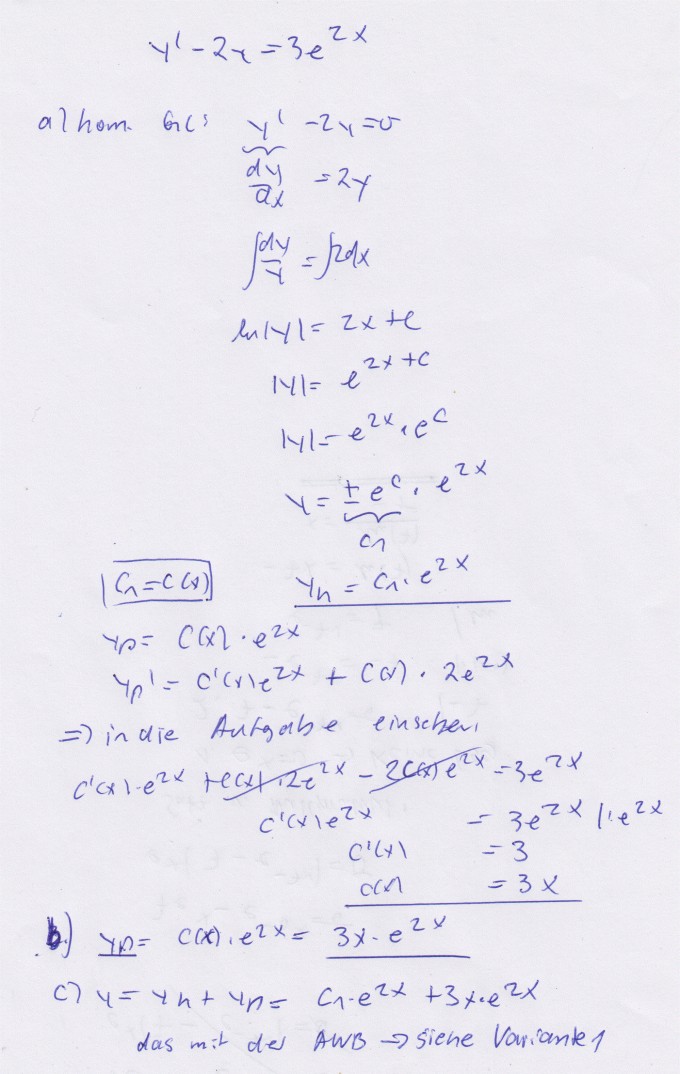 y' - 2y = 3e^2x
a) hom. Gl: y' - 2y = 0
dy/dx = 2y
∫dy/y = ∫2dx
ln|y| = 2x + c
|y| = e^2x+c
|y| = e^2x · e^c
y = ± e^c · e^2x
C1
C1 = C(x) yh = C1 · e^2x
yp = C(x) · e^2x
yp' = C'(x) e^2x + C(x) · 2e^2x
=> in die Aufgabe einsetzen
C'(x) · e^2x + C(x) · 2e^2x - 2C(x) e^2x = 3e^2x
C'(x) e^2x = 3e^2x |: e^2x
C'(x) = 3
C(x) = 3x
b.) yp = C(x) · e^2x = 3x · e^2x
c) y = yh + yp = C1 · e^2x + 3x · e^2x
das mit der AWB -> siehe Variante 1